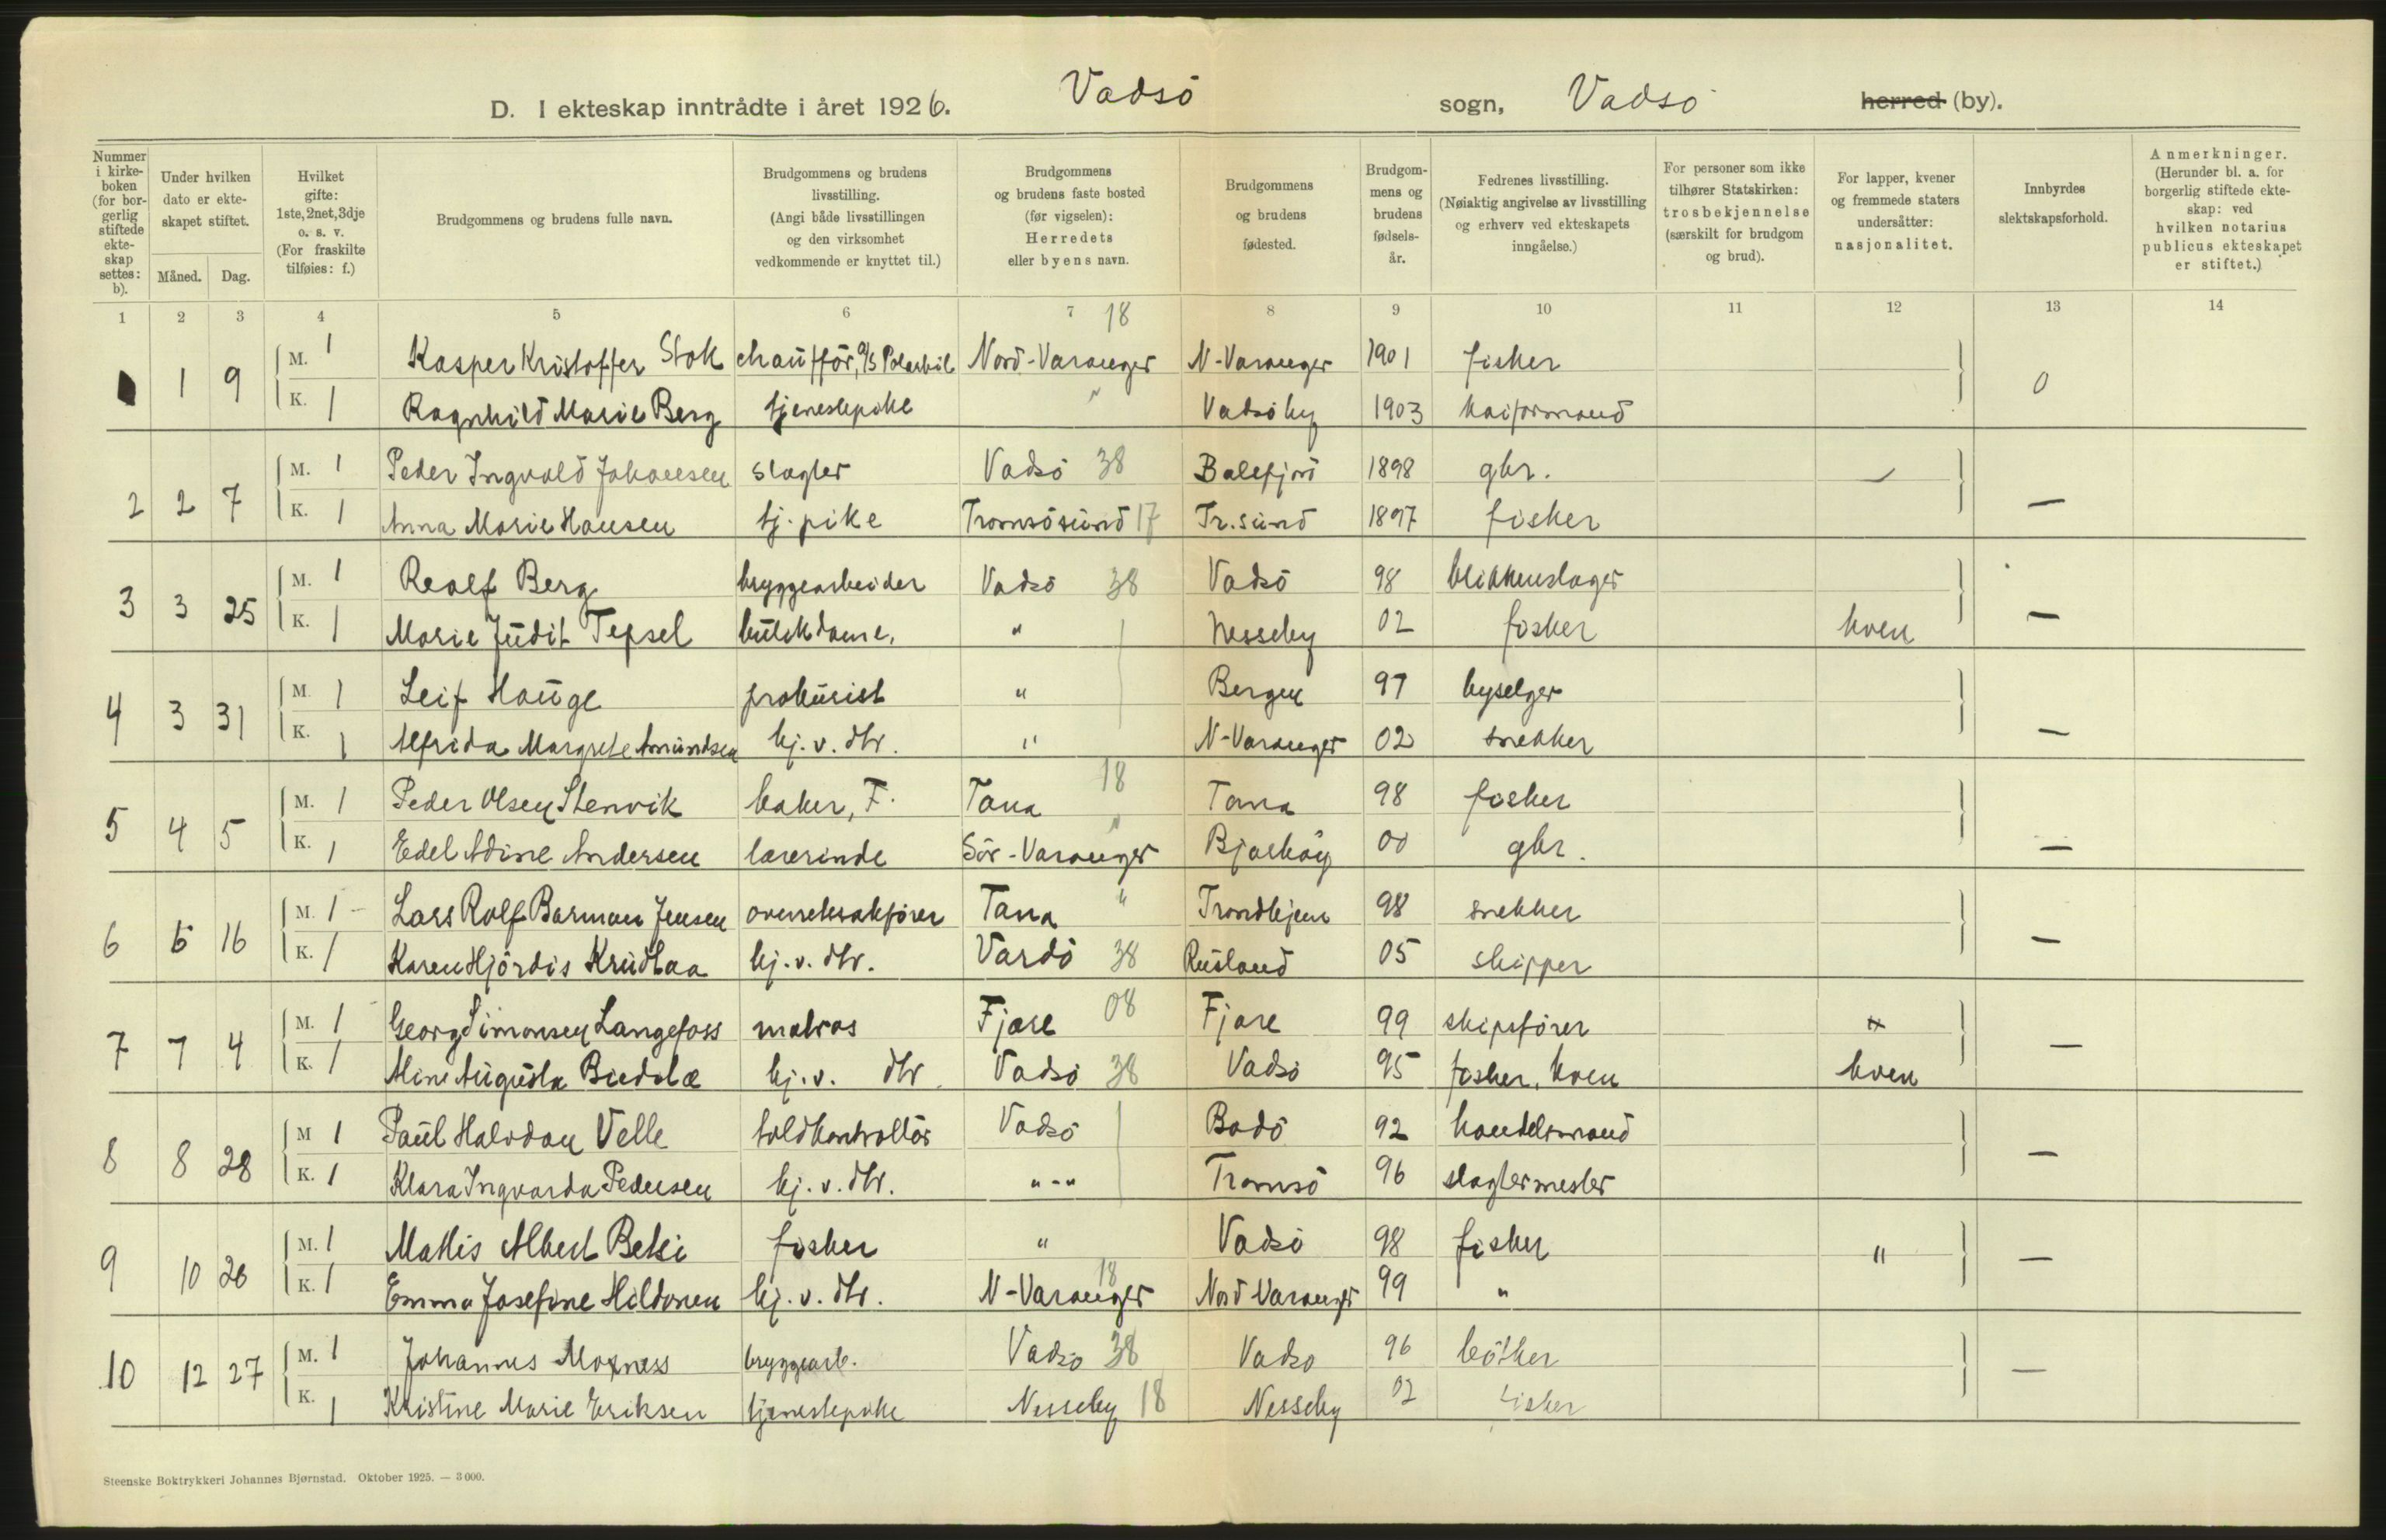 D. I ekteskap inntrådte i året 1926. Vadsö sogn, Vadsö herred (by).
Nummer i kirkeboken (for borgerlig stiftede ekteskap settes: b).
Under hvilken dato er ekteskapet stiftet.
Måned. Dag.
Hvilket gifte: 1ste, 2net, 3dje o. s. v. (For fraskilte tilføies: f.)
Brudgommens og brudens fulle navn.
Brudgommens og brudens livsstilling. (Angi både livsstillingen og den virksomhet vedkommende er knyttet til.)
Brudgommens og brudens faste bosted (før vigselen): Herredets eller byens navn.
Brudgommens og brudens fødested.
Brudgommens og brudens fødselsår.
Fedrenes livsstilling. (Nøiaktig angivelse av livsstilling og erhverv ved ekteskapets inngåelse.)
For personer som ikke tilhører Statskirken: trosbekjennelse (særskilt for brudgom og brud).
For lapper, kvener og fremmede staters undersåtter: nasjonalitet.
Innbyrdes slektskapsforhold.
Anmerkninger. (Herunder bl. a. for borgerlig stiftede ekteskap: ved hvilken notarius publicus ekteskapet er stiftet.)
1 2 3 4 5 6 7 8 9 10 11 12 13 14
18
1 9 M. 1 Kasper Kristoffer Stok chaufför, A/S Polarbil Nord-Varanger N-Varanger 1901 fisker 0
K. 1 Ragnhild Marie Berg tjenestepike " Vadsö by 1903 kaiformand
2 2 7 M. 1 Peder Ingvald Johansen slagter Vadsö 38 Balsfjord 1898 gbr. —
K. 1 Anna Marie Hansen tj. pike Tromsösund 17 Tr.sund 1897 fisker
3 3 25 M. 1 Realf Berg bryggearbeider Vadsö 38 Vadsö 98 blikkenslager —
K. 1 Marie Judit Tepsel butikdame, " Nesseby 02 fisker kven
4 3 31 M. 1 Leif Hauge prokurist " Bergen 97 byselger —
K. 1 Alfrida Margrete Amundsen hj. v. dtr. " N-Varanger 02 snekker
5 4 5 M. 1 Peder Olsen Stenvik baker, F. Tana 18 Tana 98 fisker —
K. 1 Edel Adine Andersen lærerinde Sör-Varanger " Bjarköy 00 gbr.
6 6 16 M. 1 Lars Rolf Barman Jensen overretssakfører Tana " Trondhjem 98 snekker —
K. 1 Karen Hjördis Krudtaa hj. v. dtr. Vardö 38 Rusland 05 skipper
7 7 4 M. 1 Georg Simonsen Langefoss matros Fjære 08 Fjære 99 skipsfører —
K. 1 Aline Augusta Biedilæ hj. v. dtr. Vadsö 38 Vadsö 95 fisker, kven kven
8 8 28 M 1 Paul Halvdan Velle toldkontrollör Vadsö Bodö 92 handelsmand —
K. 1 Klara Ingvarda Pedersen hj. v. dtr. "-" Tromsö 96 slagtermester
9 10 26 M. 1 Mattis Albert Betsi fisker " Vadsö 98 fisker " —
K. 1 Emma Josefine Hildonen hj. v. dtr. N-Varanger 18 Nord Varanger 99 "
10 12 27 M. 1 Johannes Moxness bryggearb. Vadsö 38 Vadsö 96 bötker —
K. 1 Kristine Marie Eriksen tjenestepike Nesseby 18 Nesseby 02 fisker
Steenske Boktrykkeri Johannes Bjørnstad. Oktober 1925. — 3000.